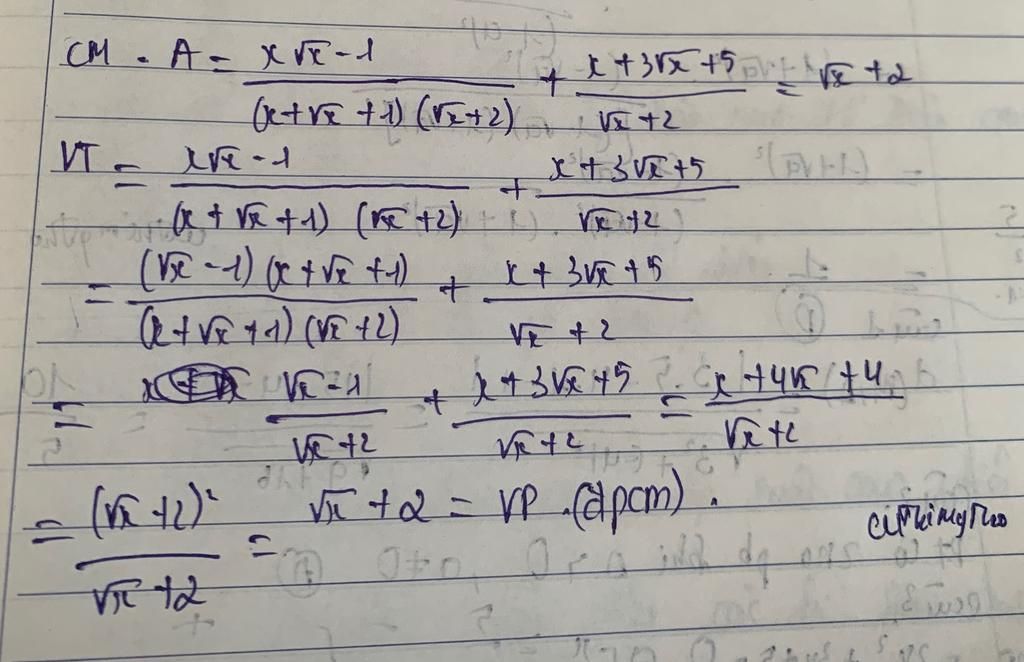 CM . A = x√x - 1 / (x + √x + 1) (√x + 2) + x + 3√x + 5 / √x + 2 = √x + 2
VT = x√x - 1 / (x + √x + 1) (√x + 2) + x + 3√x + 5 / √x + 2
= (√x - 1) (x + √x + 1) / (x + √x + 1) (√x + 2) + x + 3√x + 5 / √x + 2
= √x - 1 / √x + 2 + x + 3√x + 5 / √x + 2 = x + 4√x + 4 / √x + 2
= (√x + 2)² / √x + 2 = √x + 2 = VP. (đpcm).